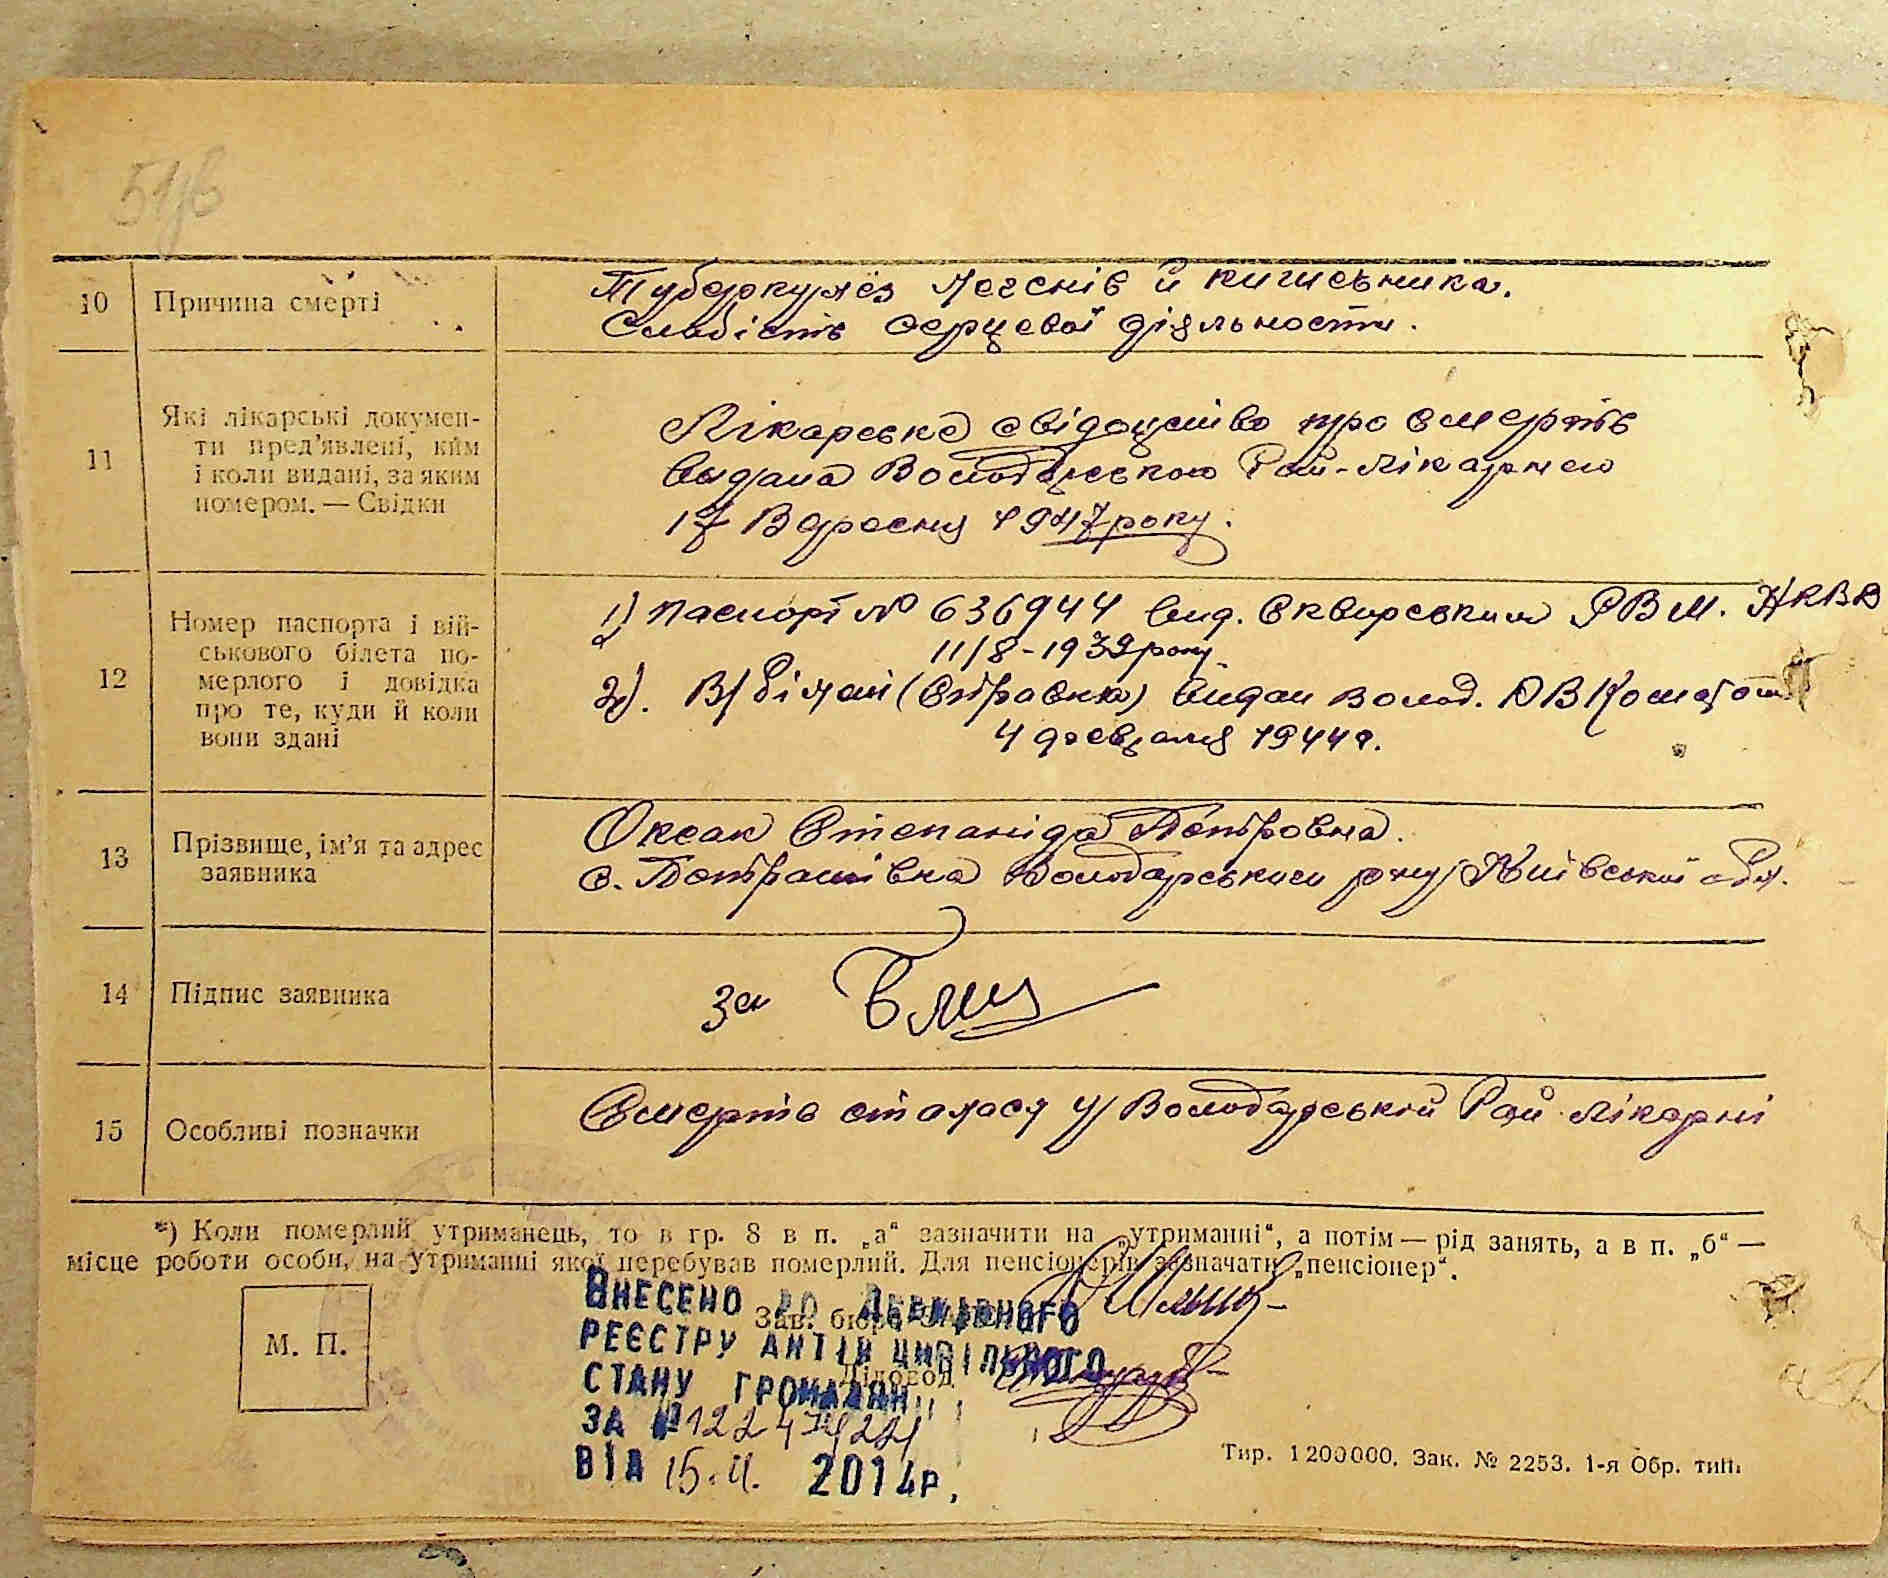 10 Причина смерті
Туберкульоз легенів й кишечника.
Слабість серцевої діяльности.
11 Які лікарські докумен-
ти пред'явлені, ким
і коли видані, за яким
номером. — Свідки
Лікарське свідоцтво про смерть
видана Володарською Рай-лікарнею
17 Вересня 1947 року.
12 Номер паспорта і вій-
ськового білета по-
мерлого і довідка
про те, куди й коли
вони здані
1) Паспорт № 636944 вид. Сквирським РВМ. НКВД
11/8-1939 року.
2). В/білет (Справка) видан Волод.
4 февраля 1944 г.
13 Прізвище, ім'я та адрес
заявника
Оксак Степаніда Петровна.
с. Петрашівка Володарського р-ну Київської обл.
14 Підпис заявника
За
15 Особливі позначки
Смерть сталася у Володарській Рай лікарні
*) Коли померлий утриманець, то в гр. 8 в п. „а“ зазначити на „утриманні“, а потім — рід занять, а в п. „б“ —
місце роботи особи, на утриманні якої перебував померлий. Для пенсіонерів зазначати „пенсіонер“.
М. П.
Зав. бюро
Діловод
Внесено до Державного
реєстру актів цивільного
стану громадян
за №
від 2014р.
Тир. 1 200 000. Зак. № 2253. 1-я Обр. тип.